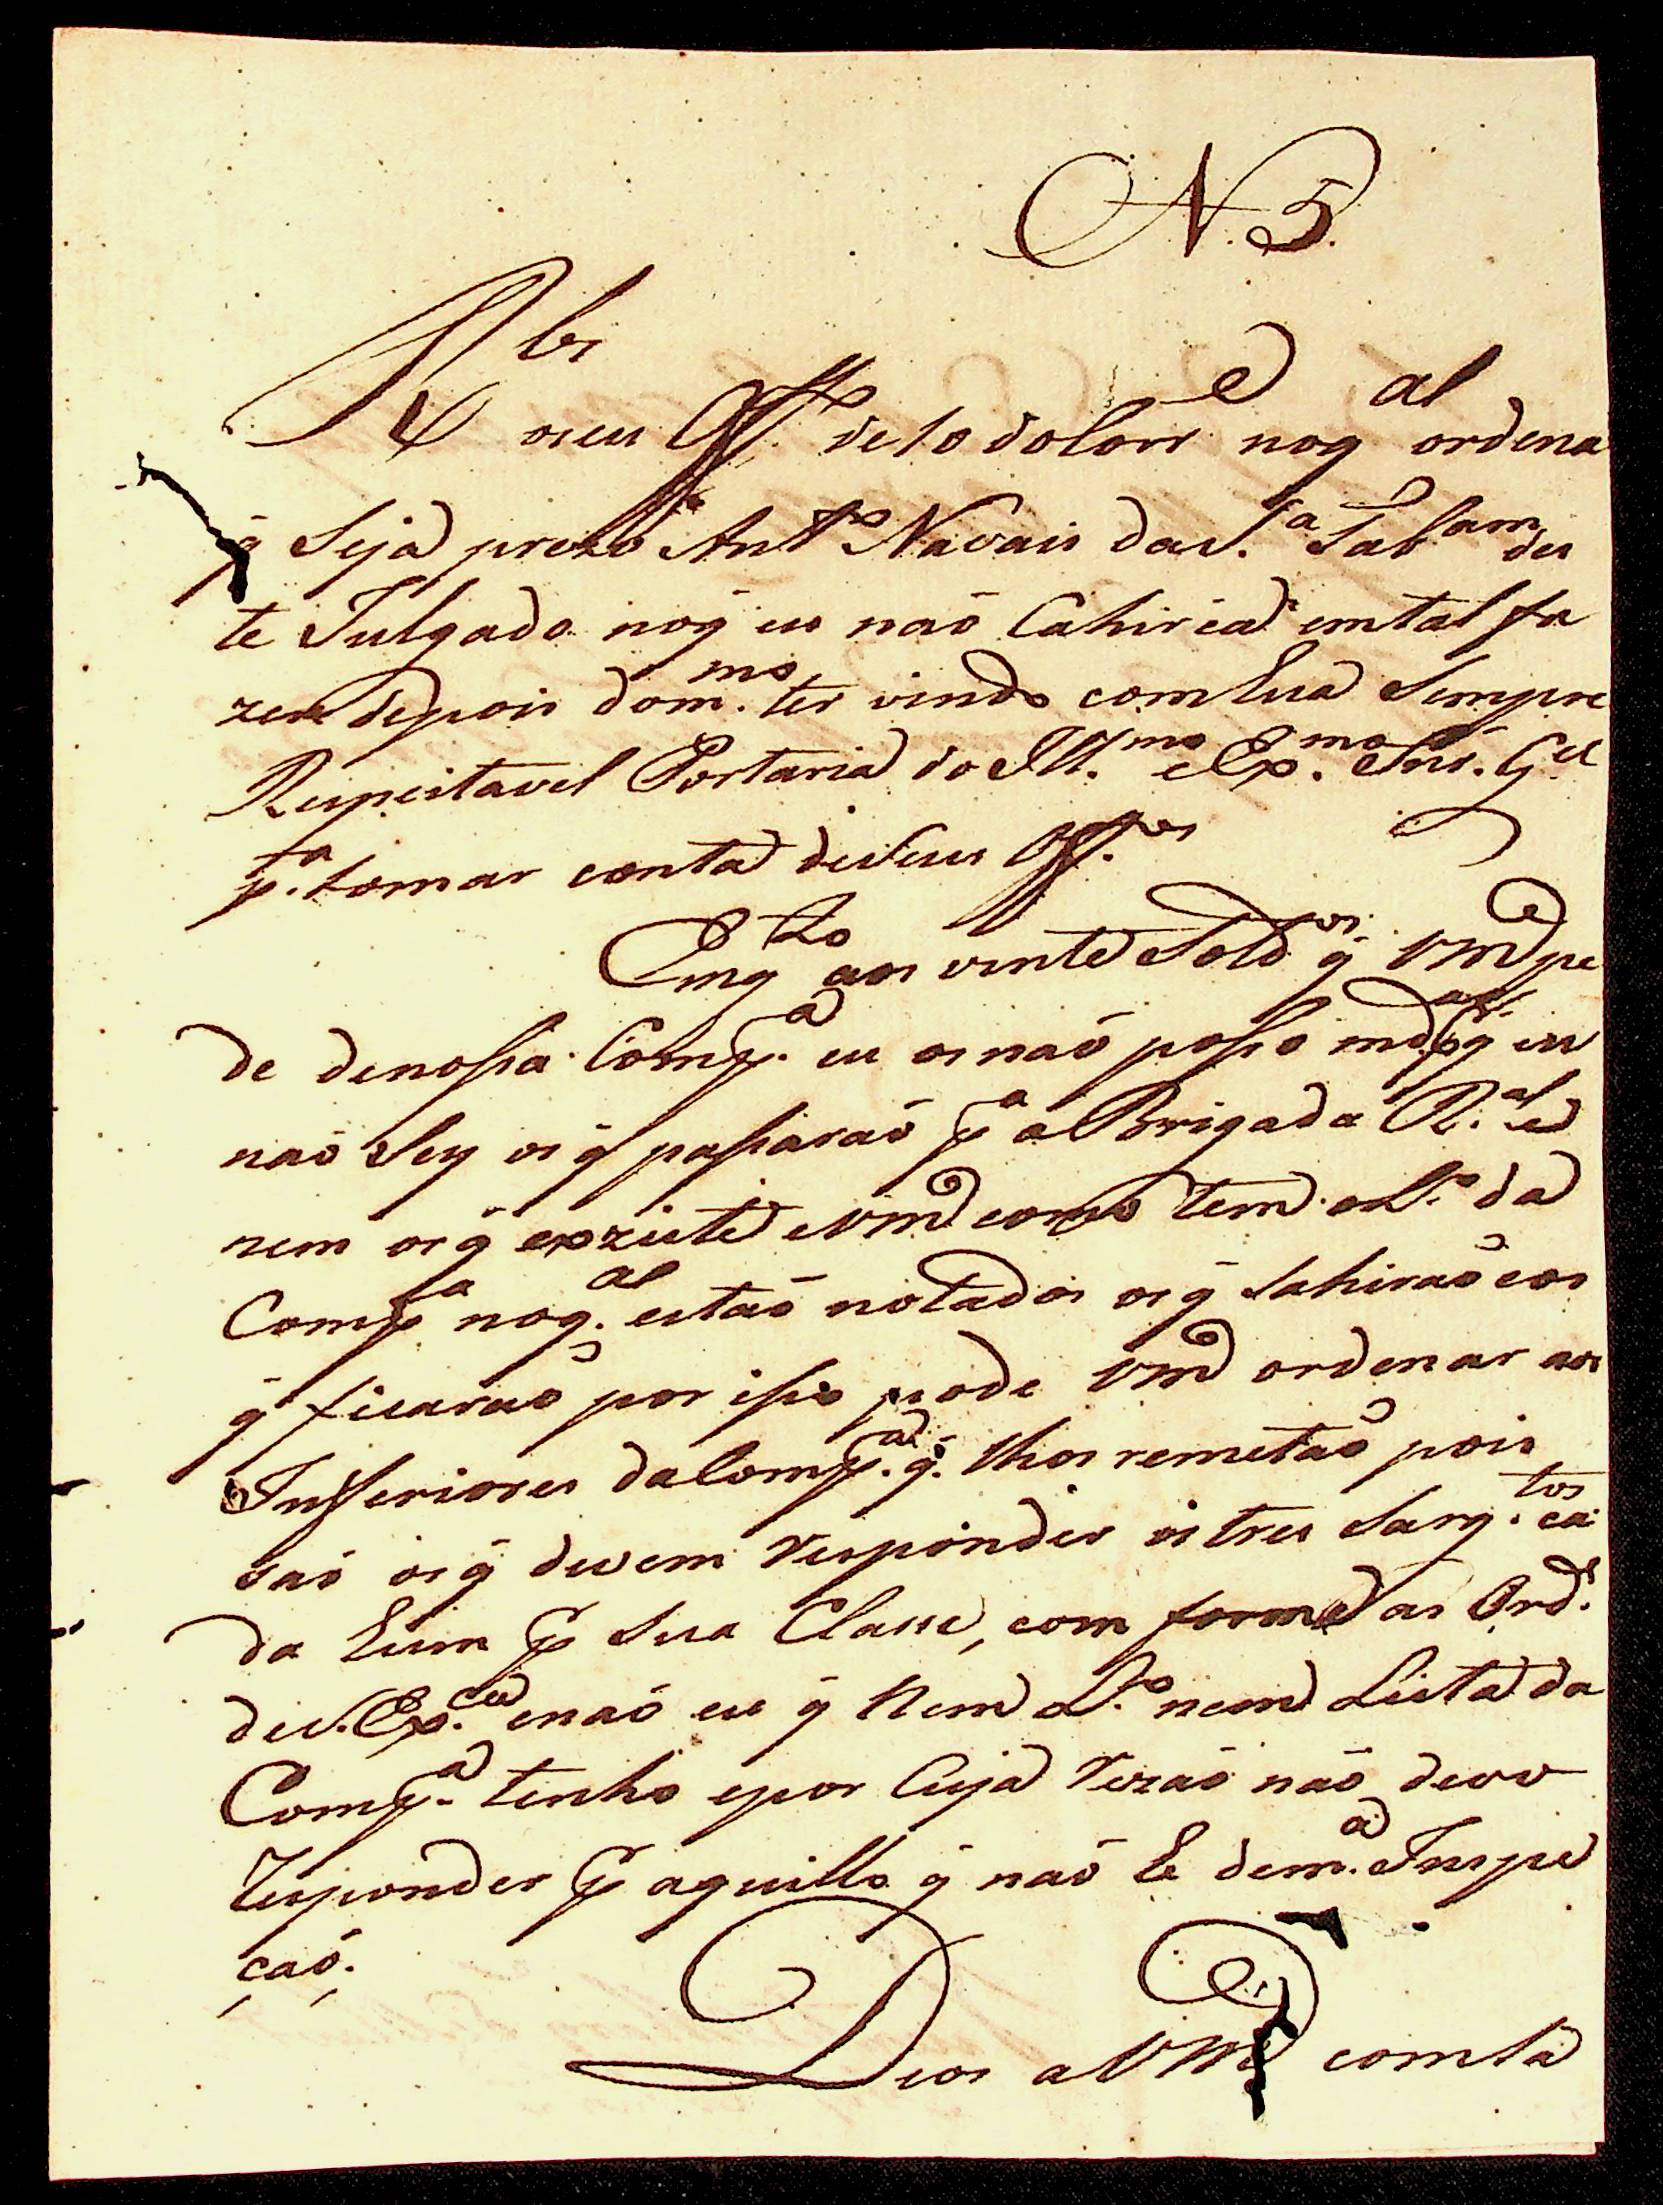 N. 5.
R.bi oseu Off.o de 10 do Corr.e noq.al ordena
q̃ Seja prezo Ant.o Navais da S.a Sab
te Julgado noq̃ eu naõ Cahirea em tal fa
zer depois dom.mo ter vindo com hua Sempre
Respeitavel Portaria do Ill.mo e Ex.mo Snr. G.el
p.a tomar conta de Seus Off.es
Emq.to aos vinte Sold.os q̃ VM.e pe
de denossa Comp.a eu os naõ posso md.ar q̃ eu
naõ Sey os q̃ passaraõ p.a a Brigada R.al e
nem os q̃ exziste e VM.e como tem o L.o da
Comp.a noq.al estaõ notados os q̃ Sahiraõ e os
q̃ ficaraõ por isso pode VM.e ordenar aos
Inferiores da Comp.a q̃ lhos remetaõ pois
saõ os q̃ devem responder os tres Sarg.tos ca
da hum p Sua Classe, com forme as Ord.
de S. Ex.cia enaõ eu q̃ Nem L.o nem Lista da
Comp.a tenho epor Cuja rezaõ naõ devo
responder p aquillo q̃ naõ he dem.a Inspe
çaõ.
Deos a VM.e com la